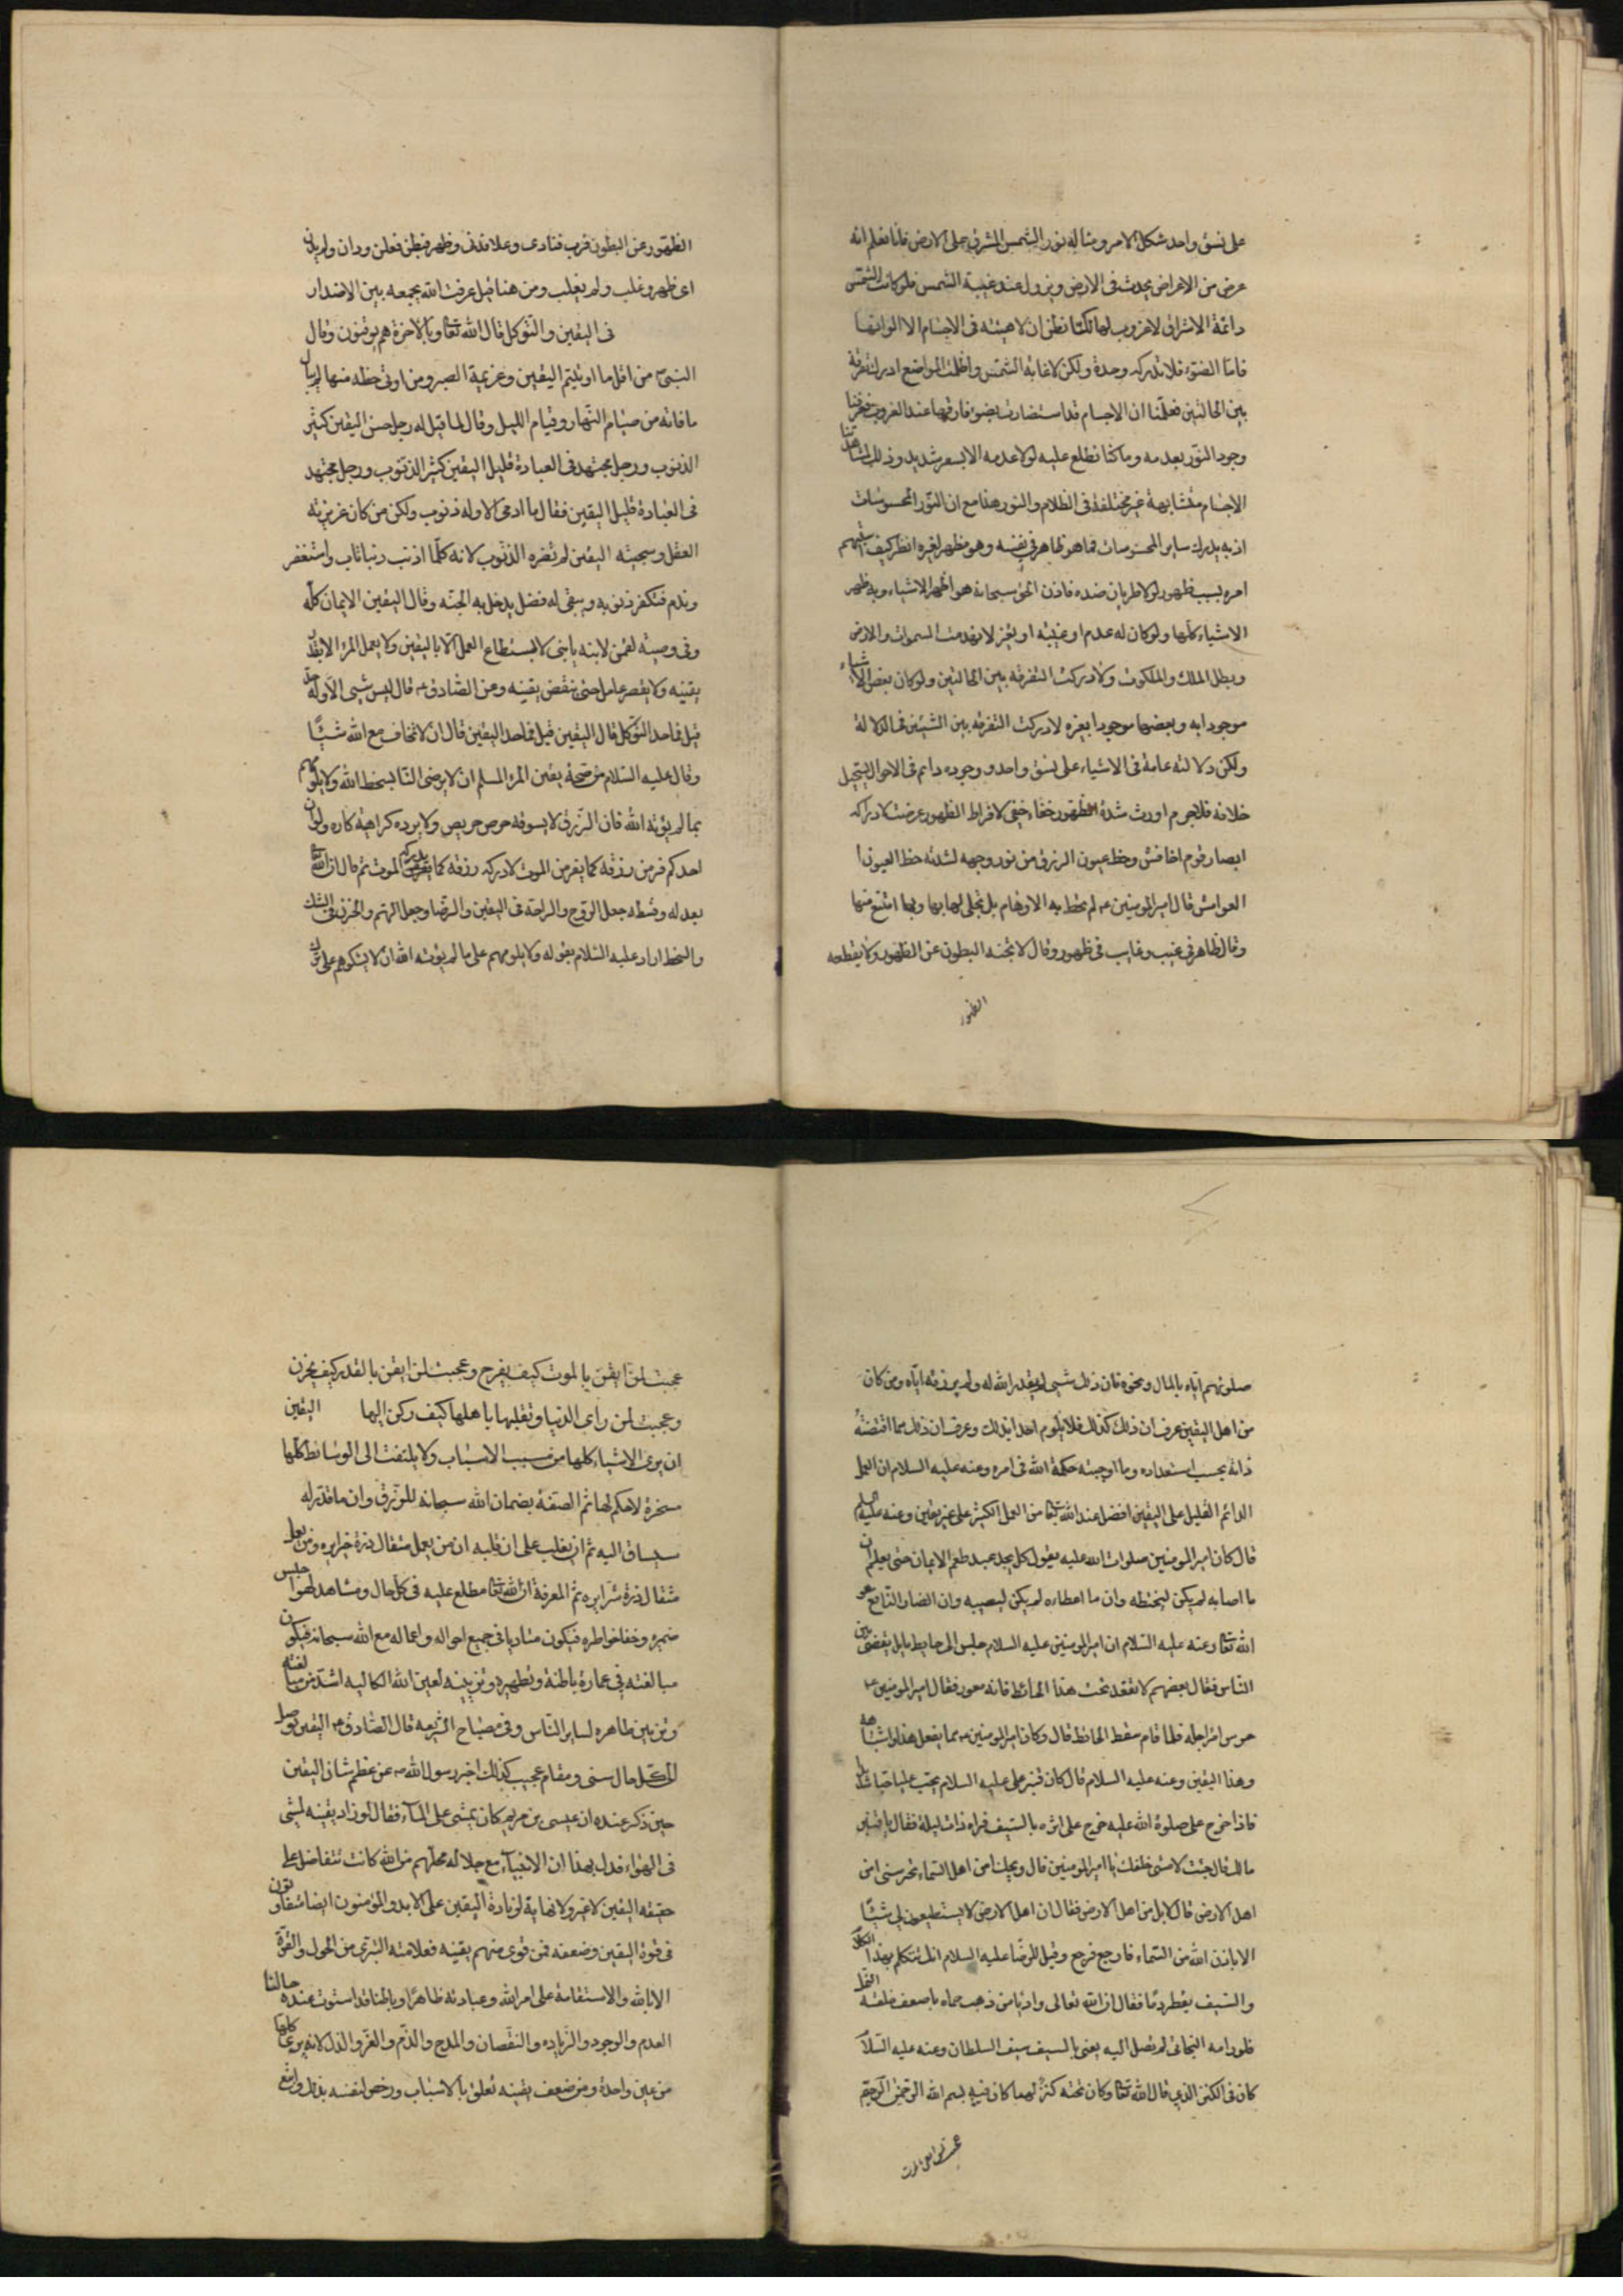 على نسق واحد شكل الامر ومثاله نور الشمس المشرق على الارض فانا نعلم انه
عرض من الاعراض يحدث فى الارض ويزول عند غيبة الشمس فلو كانت الشمس
دائمة الاشراق لا غروب لها لكنا نظن ان لا هيئه فى الاجسام الا الوانها
فاما الضوء فلا ندركه وحدة ولكن لما غابت الشمس واظلمت المواضع ادركنا تفرقة
بين الحالتين فعلمنا ان الاجسام قد استضارت بضوء فارقها عند الغروب فعرفنا
وجود النور بعدمه وما كنا نطلع عليه لولا عدمه الا بعسر شديد وذلك لمشاهدتنا
الاجسام متشابهة غير مختلفة فى الظلام والنور هذا مع ان النور اظهر المحسوسات
اذ به يدرك ساير المحسوسات فما هو ظاهر فى نفسه وهو مظهر لغيره انظر كيف استبهم
امره بسبب ظهوره لولا طريان ضده فاذن الحق سبحانه هو اظهر الاشياء وبه ظهر
الاشياء كلها ولو كان له عدم او غيبه او تغير لانهدمت السموات والارض
وبطل الملك والملكوت ولادركت التفرقة بين الحالتين ولو كان بعض الاشياء
موجودا به وبعضها موجودا بغيره لادركت التفرقه بين الشيئين فى الدلالة
ولكن دلالته عامة فى الاشياء على نسق واحد ووجوده دائم فى الاحوال يستحيل
خلافه فلا جرم اورث شدة الظهور خفاء خفى لافراط الظهور عرضت لادراكه
ابصار قوم اخافش وحظ عيون الزرق من نور وجهه لشدته حظ العيون ا
العوامش قال امير المومنين ع لم تحط به الاوهام بل تجلى لها بها وبها امتنع منها
وقال ظاهر فى غيب وغايب فى ظهور وقال لا تجنه البطون عن الظهور ولا يقطعه
الظهور
الظهور عن البطون قرب فناى وعلا فدنى وظهر فبطن وبطن فعلن ودان ولم يدن
اى ظهر وغلب ولم يغلب ومن هنا قيل عرفت الله بجمعه بين الاضداد
فى اليقين والتوكل قال الله تعا وبالاخرة هم يوقنون وقال
النبى ص من اقل ما اوتيتم اليقين وعزيمة الصبر ومن اوتى حظه منها لم يبال
ما فاته من صيام النهار وقيام الليل وقال لما قيل له رجل حسن اليقين كثير
الذنوب ورجل مجتهد فى العبادة قليل اليقين كثير الذنوب ورجل مجتهد
فى العبادة قليل اليقين فقال ما ادمى الا وله ذنوب ولكن من كان غريزته
العقل وسجيته اليقين لم تضره الذنوب لانه كلما اذنب ذنبا تاب واستغفر
وندم فتكفر ذنوبه ويبقى له فضل يدخل به الجنه وقال اليقين الايمان كله
وفى وصية لقمن لابنه يا بنى لا يستطاع العمل الا باليقين ولا يعمل المرء الا بقدر
يقينه ولا يقصر عامل حتى ينقص يقينه وعن الصادق ع قال ليس شيى الا وله حد
قيل فما حد التوكل قال اليقين قيل فما حد اليقين قال ان لا تخاف مع الله شيئا
وقال عليه السلام من صحة يقين المرء المسلم ان لا يرضى الناس بسخط الله ولا يلومهم
بما لم يؤته الله فان الرزق لا يسوقه حرص حريص ولا يرده كراهية كاره ولو ان
احدكم فر من رزقه كما يفر من الموت لادركه رزقه كما يدركه الموت ثم قال ان الله
بعدله وقسطه جعل الروح والراحة فى اليقين والرضا وجعل الهم والحزن فى الشك
والسخط اراد عليه السلام بقوله ولا يلومهم على ما لم يؤته الله ان لا يشكوهم على ترك
صلوتهم اياه بالمال ونحوه فان ذلك شيى لم يقدر الله له ولم يرزقه اياه ومن كان
من اهل اليقين عرف ان ذلك كذلك فلا يلوم احدا بذلك وعرف ان ذلك مما اقتضته
ذاته بحسب استعداده وما اوجبته حكمة الله فى امره وعنه عليه السلام ان العمل
الدائم القليل على اليقين افضل عند الله تعا من العمل الكثير على غير يقين وعنه عليه السلم
قال كان امير المومنين صلوات الله عليه يقول كل يجد عبد طعم الايمان حتى يعلم ان
ما اصابه لم يكن ليخطئه وان ما اخطاءه لم يكن ليصيبه وان الضار النافع هو
الله تعا وعنه عليه السلام ان امير المومنين عليه السلام جلس الى حايط مايل يقضى بين
الناس فقال بعضهم لا تقعد تحت هذا الحائط فانه معور فقال امير المومنين ع
حرس امرء اجله فلما قام سقط الحائط قال وكان امير المومنين ع مما يفعل هذا واشباهه
وهذا اليقين وعنه عليه السلام قال كان قنبر غلام على عليه السلام يحب عليا حبا شديدا
فاذا خرج على صلوة الله عليه خرج على اثره بالسيف فراه ذات ليلة فقال يا قنبر
مالك قال جئت لامشى خلفك يا امير المومنين قال ويحك امن اهل السماء تحرسنى ام من
اهل الارض قال لا بل من اهل الارض فقال ان اهل الارض لا يستطيعون لى شيئا
الا باذن الله من السماء فارجع فرجع وقيل للرضا عليه السلام انك تتكلم بهذا الكلام
والسيف يقطر دما فقال ان لله تعالى واديا من ذهب حماه باضعف خلقه النمل
فلو رامه البخاتى لم تصل اليه يعنى بالسيف سيف السلطان وعنه عليه السلا
كان فى الكنز الذى قال الله تعا وكان تحته كنز لهما كان فيه بسم الله الرحمن الرحيم
عجبت لمن ايقن بالموت
عجبت لمن ايقن بالموت كيف يفرح وعجبت لمن ايقن بالقدر كيف يحزن
وعجبت لمن راى الدنيا وتقلبها باهلها كيف ركن اليها اليقين
ان يرى الاشياء كلها من مسبب الاسباب ولا يلتفت الى الوسائط كلها
مسخرة لا حكم لها ثم الصقة بضمان الله سبحانه للرزق وان ما قدر له
سيساق اليه ثم ان يغلب على ان قلبه ان من يعمل مثقال ذرة خيرا يره ومن يعمل
مثقال ذرة شرا يره ثم المعرفة ان الله تعا مطلع عليه فى كل حال ومشاهد لهواجس
ضميره وخفا خواطره فيكون متادبا فى جميع احواله واعماله مع الله سبحانه فيكون
مبالغته فى عمارة باطنه وتطهيره وتزيينه لعين الله الكاليه اشد من مبالغته
فى تزيين ظاهره لساير الناس وفى مصباح الشريعه قال الصادق ع اليقين يوصل
الى كل حال سنى ومقام عجيب كذلك اخبر رسول الله ص عن عظم شان اليقين
حين ذكر عنده ان عيسى بن مريم كان يمشى على الماء فقال لو زاد يقينه لمشى
فى الهواء فدل بهذا ان الانبياء مع جلاله محلهم من الله كانت تتفاضل على
حقيقه اليقين لا غير ولا نهاية لزيادة اليقين على الابد والمؤمنون ايضا متفاوتون
فى قوة اليقين وضعفه فمن قوى منهم يقينه فعلامته التبرى من الحول والقوة
الا بالله والاستقامة على امر الله وعبادته ظاهرا وباطنا قد استوت عنده حالتا
العدم والوجود والزياده والنقصان والمدح والذم والعز والذل لانه يرى كلها
من عين واحدة ومن ضعف يقينه تعلق بالاسباب ورخص لنفسه بذلك واتبع